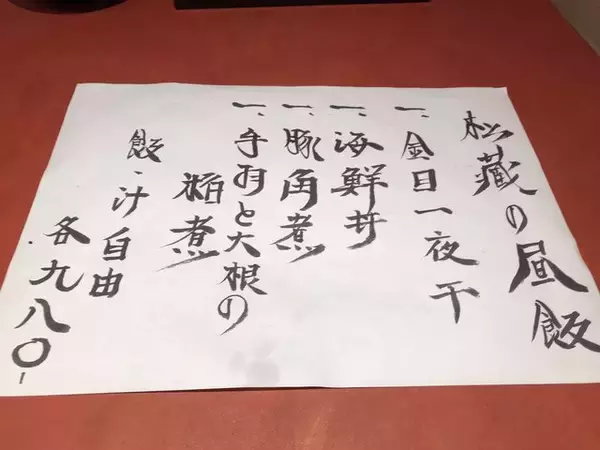 松藏の昼飯
一、金目一夜干
一、海鮮丼
一、豚角煮
一、手羽と大根の
粕煮
飯・汁自由
各九八〇-